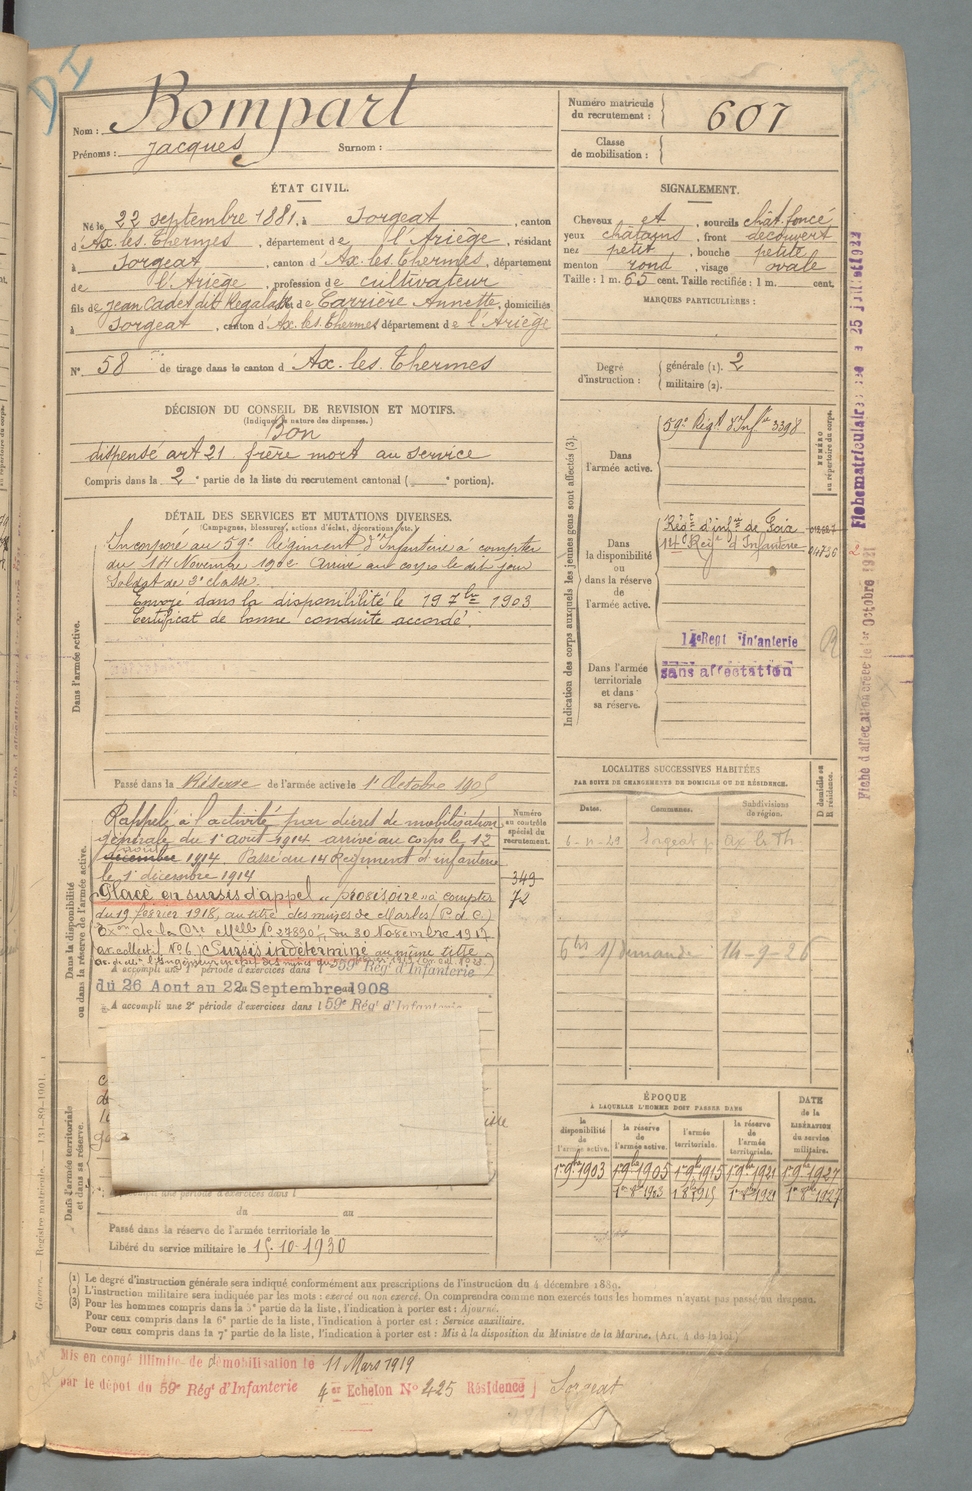 D I
Nom : Bompart
Prénoms : Jacques Surnom :
Numéro matricule
du recrutement : 607
Classe
de mobilisation :
ÉTAT CIVIL.
Né le 22 septembre 1881, à Sorgeat, canton
d'Ax-les-Thermes, département de l'Ariège, résidant
à Sorgeat, canton d'Ax-les-Thermes, département
de l'Ariège, profession de cultivateur
fils de Jean Cadet dit et de Carrière Annette, domiciliés
à Sorgeat, canton d'Ax-les-Thermes département de l'Ariège
N° 58 de tirage dans le canton d'Ax-les-Thermes
SIGNALEMENT.
Cheveux et, sourcils chât. foncé
yeux châtains, front découvert
nez petit, bouche petite
menton rond, visage ovale
Taille : 1 m. 65 cent. Taille rectifiée : 1 m. cent.
MARQUES PARTICULIÈRES :
Degré
d'instruction :
générale (1). 2
militaire (2).
DÉCISION DU CONSEIL DE REVISION ET MOTIFS.
(Indiquer la nature des dispenses.)
Bon
dispensé art 21 frère mort au service
Compris dans la 2e partie de la liste du recrutement cantonal ( e portion).
DÉTAIL DES SERVICES ET MUTATIONS DIVERSES.
(Campagnes, blessures, actions d'éclat, décorations, etc.)
Dans l'armée active.
Incorporé au 59e Régiment d'Infanterie à compter
du 14 Novembre 1902 Arrivé au corps le dit jour
Soldat de 2e classe.
Envoyé dans la disponibilité le 19 7bre 1903
Certificat de bonne conduite accordé.
Passé dans la Réserve de l'armée active le 1er Octobre 1905
Indication des corps auxquels les jeunes gens sont affectés (3).
NUMÉRO
au répertoire du corps.
Dans
l'armée active.
59e Régt d'Infie 3398
Dans
la disponibilité
ou
dans la réserve
de
l'armée active.
Régt d'infie de Foix
14e Régt d'Infanterie
Dans l'armée
territoriale
et dans
sa réserve.
14e Regt Infanterie
sans affectation
Fiche matriculaire 25 juillet
Fiche d'affectation créée le 1er Octobre
Dans la disponibilité
ou dans la réserve de l'armée active.
Numéro
au contrôle
spécial du
recrutement.
349
72
Rappelé à l'activité par décret de mobilisation
générale du 1er août 1914 arrivé au corps le 12
décembre août 1914. Passé au 14 Régiment d'infanterie
le 1er décembre 1914
Placé en sursis d'appel provisoire à compter
du 19 février 1918, au titre des mines de Marles (P. d. C.)
de la Cre Melle N° 27890, du 30 Novembre 1917
Sursis indéterminé au même titre
A accompli une 1re période d'exercices dans l 59e Régt d'Infanterie
du 26 Aout au 22 Septembre 1908
A accompli une 2e période d'exercices dans l 59e Régt d'Infanterie
LOCALITÉS SUCCESSIVES HABITÉES
PAR SUITE DE CHANGEMENTS DE DOMICILE OU DE RÉSIDENCE.
Dates.
Communes.
Subdivisions
de région.
D domicile ou
R résidence.
Sorgeat Ax les Th.
demande 14-9-26
Dans l'armée territoriale
et dans sa réserve.
accompli une période d'exercices dans l
du au
Passé dans la réserve de l'armée territoriale le
Libéré du service militaire le 15.10.1930
ÉPOQUE
À LAQUELLE L'HOMME DOIT PASSER DANS
la
disponibilité
de
l'armée active.
la réserve
de
l'armée active.
l'armée
territoriale.
la réserve
de
l'armée
territoriale.
DATE
de la
LIBÉRATION
du service
militaire.
1er 9bre 1903 1er 9bre 1905 1er 9bre 1915 1er 9bre 1921 1er 9bre 1927
1er 8bre 1905 1er 8bre 1915 1er 8bre 1921 1er 8bre 1927
Guerre. — Registre matricule. 131-89-1901.
(1) Le degré d'instruction générale sera indiqué conformément aux prescriptions de l'instruction du 4 décembre 1889.
(2) L'instruction militaire sera indiquée par les mots : exercé ou non exercé. On comprendra comme non exercés tous les hommes n'ayant pas passé au drapeau.
(3) Pour les hommes compris dans la 5e partie de la liste, l'indication à porter est : Ajourné.
Pour ceux compris dans la 6e partie de la liste, l'indication à porter est : Service auxiliaire.
Pour ceux compris dans la 7e partie de la liste, l'indication à porter est : Mis à la disposition du Ministre de la Marine. (Art. 4 de la loi.)
Mis en congé illimité de démobilisation le 11 Mars 1919
par le dépot du 59e Régt d'Infanterie 4er Echelon N° 425 Résidence Sorgeat